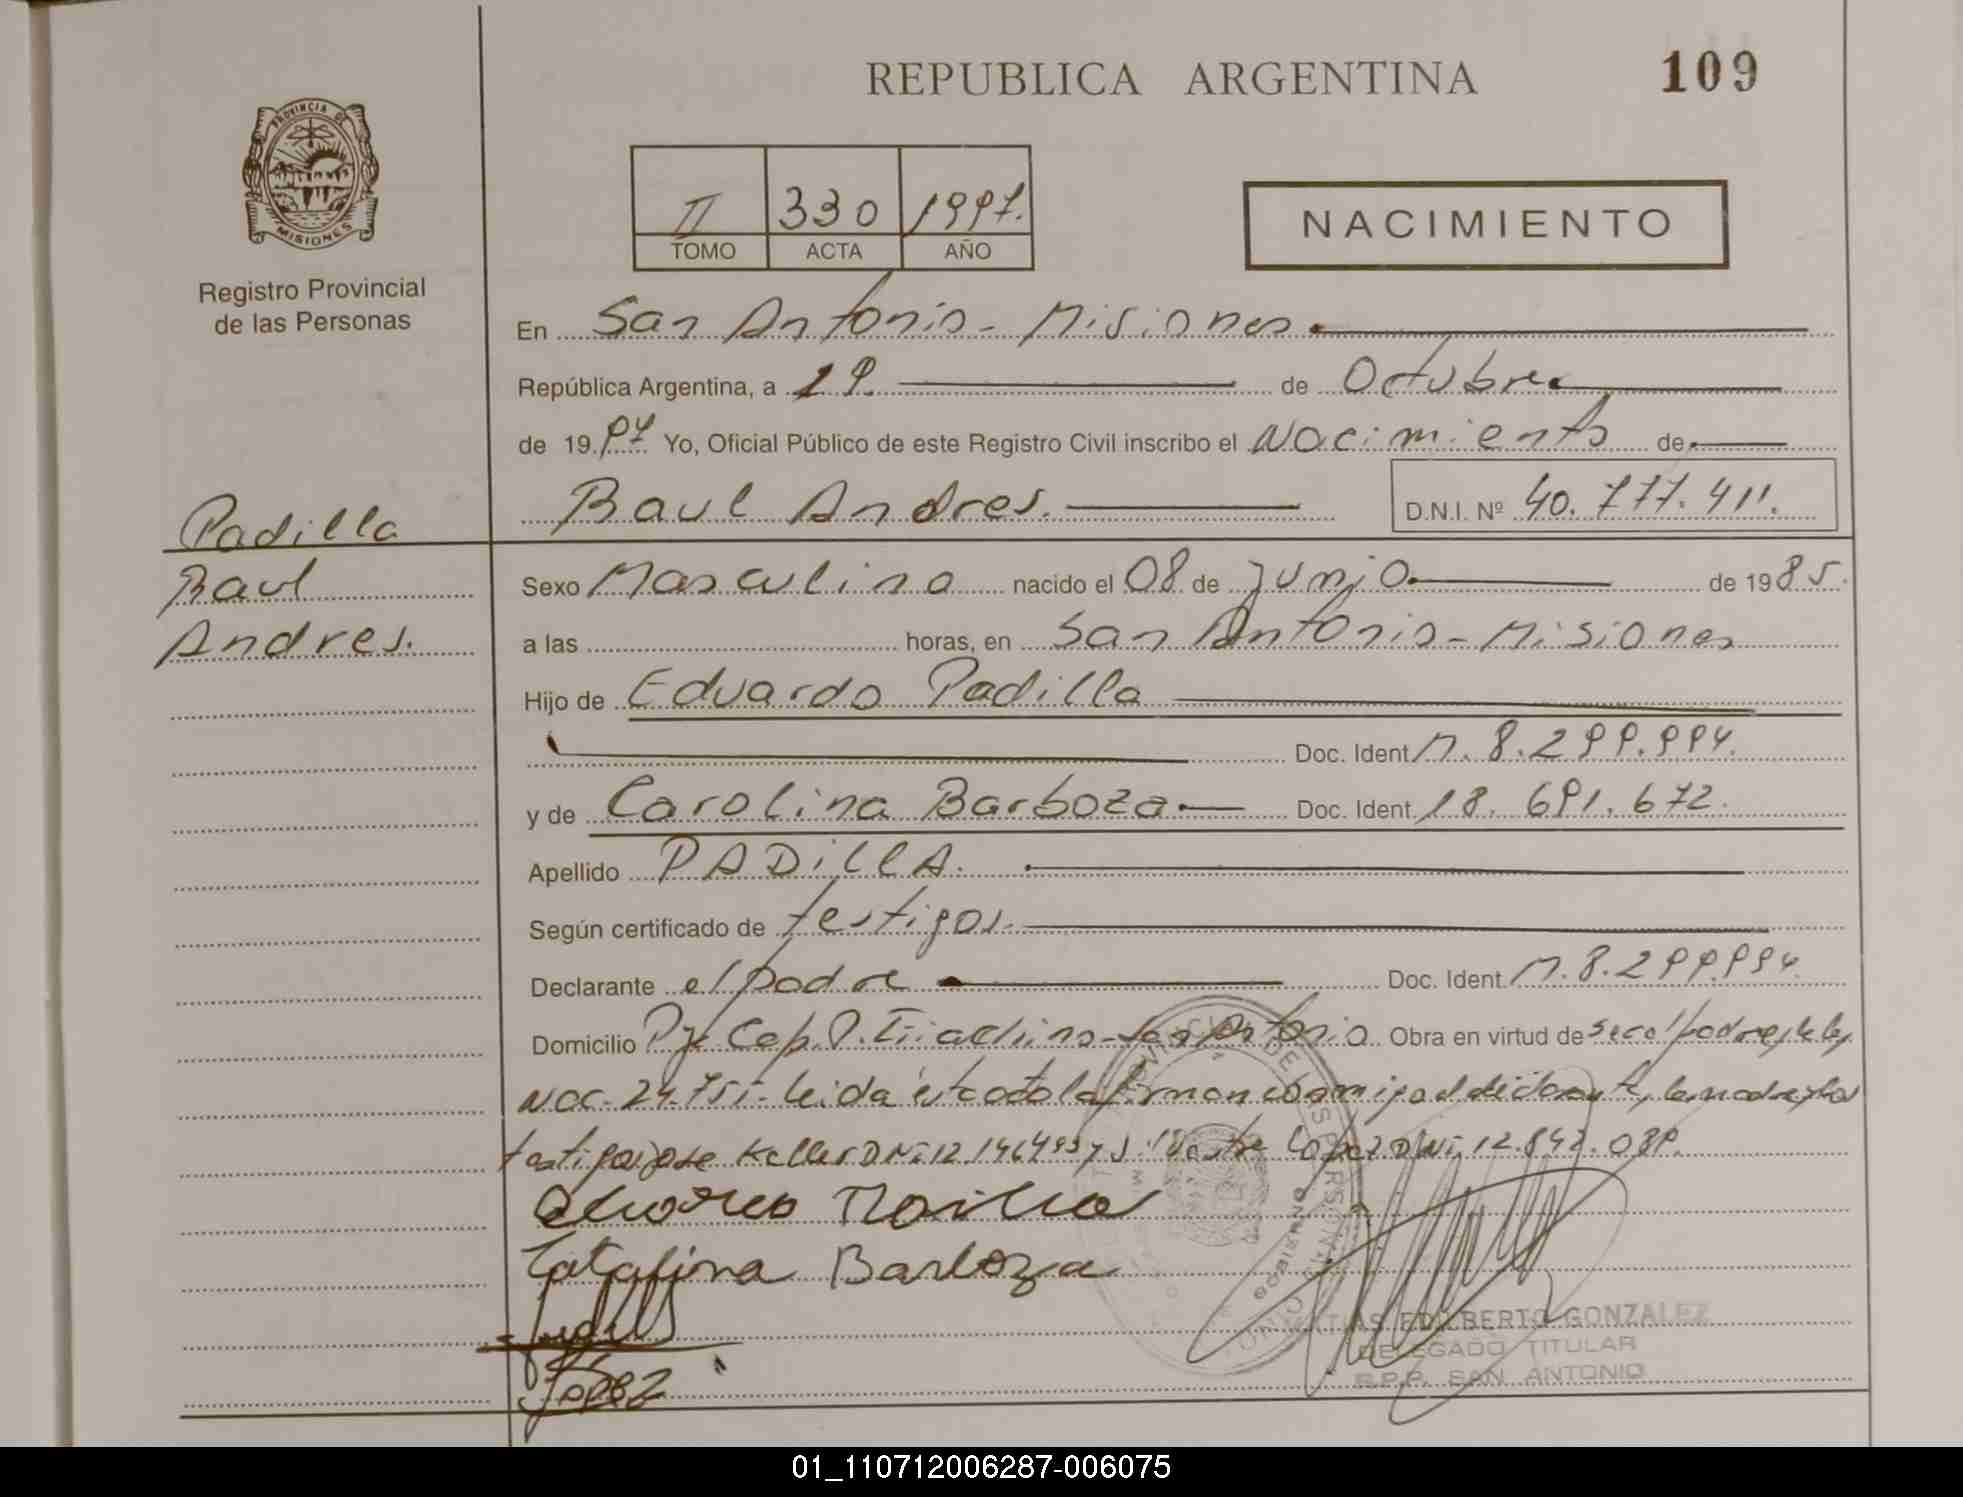 REPUBLICA ARGENTINA
109
PROVINCIA DE
MISIONES
Registro Provincial
de las Personas
II 330 1997.
TOMO ACTA AÑO
NACIMIENTO
En San Antonio - Misiones
República Argentina, a 29. de Octubre
de 1997 Yo, Oficial Público de este Registro Civil inscribo el Nacimiento de
Raul Andres. D.N.I. Nº 40.777.411.
Padilla
Raul
Andres.
Sexo Masculino nacido el 08 de junio de 1985.
a las horas, en San Antonio - Misiones
Hijo de Eduardo Padilla
Doc. Ident M. 8.299.994.
y de Carolina Barboza Doc. Ident 18. 691.672.
Apellido PADILLA.
Según certificado de testigos.
Declarante el padre Doc. Ident. M. 8.299.994.
Domicilio Pje Cap. San Antonio Obra en virtud de
Nac. 24.755- leida esta acta la firman conmigo el declarante, la madre y los
testigos jose Keller DNi. 12. y Lopez DNi. 12.842.089.
Barboza
Lopez
MATIAS EDILBERTO GONZALEZ
DELEGADO TITULAR
R.P.P. SAN ANTONIO
01_110712006287-006075